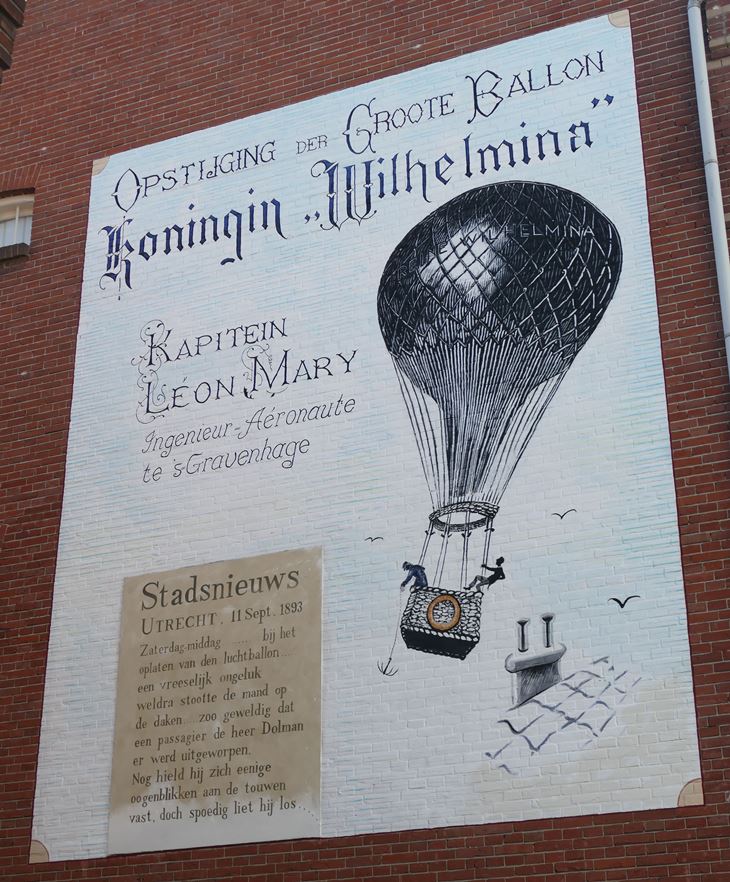 OPSTIJGING DER GROOTE BALLON
Koningin „Wilhelmina”
KAPITEIN
LÉON MARY
Ingenieur-Aéronaute
te 's-Gravenhage
WILHELMINA
Stadsnieuws
UTRECHT, 11 Sept. 1893
Zaterdag-middag ..... bij het
oplaten van den luchtballon....
een vreeselijk ongeluk
weldra stootte de mand op
de daken... zoo geweldig dat
een passagier de heer Dolman
er werd uitgeworpen.
Nog hield hij zich eenige
oogenblikken aan de touwen
vast, doch spoedig liet hij los....